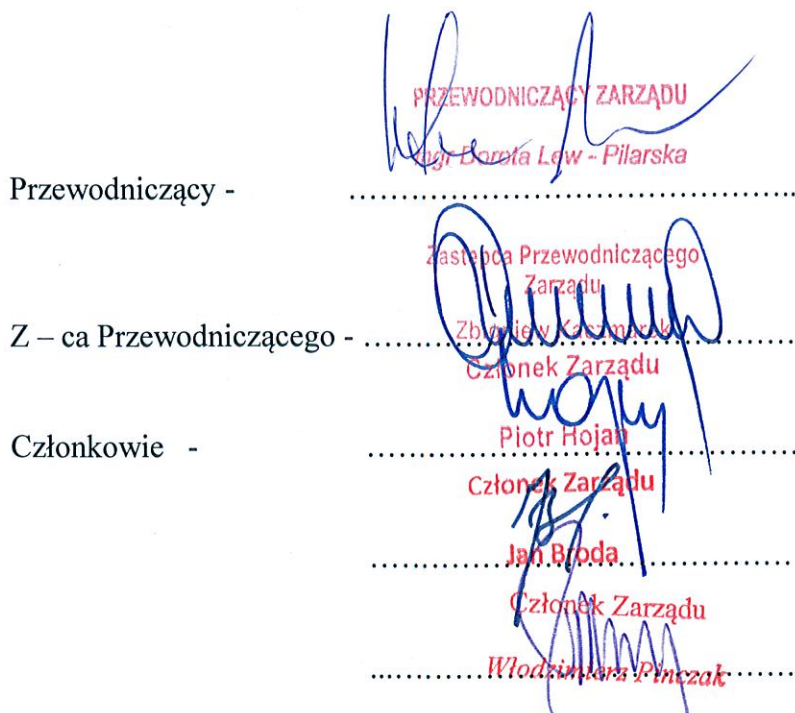 PRZEWODNICZĄCY ZARZĄDU
mgr Dorota Lew - Pilarska
Przewodniczący - ........................................
Zastępca Przewodniczącego
Zarządu
Zbigniew Kaczmarek
Z – ca Przewodniczącego - ........................................
Członek Zarządu
Piotr Hojan
Członkowie - ........................................
Członek Zarządu
Jan Broda
........................................
Członek Zarządu
Włodzimierz Pinczak
........................................